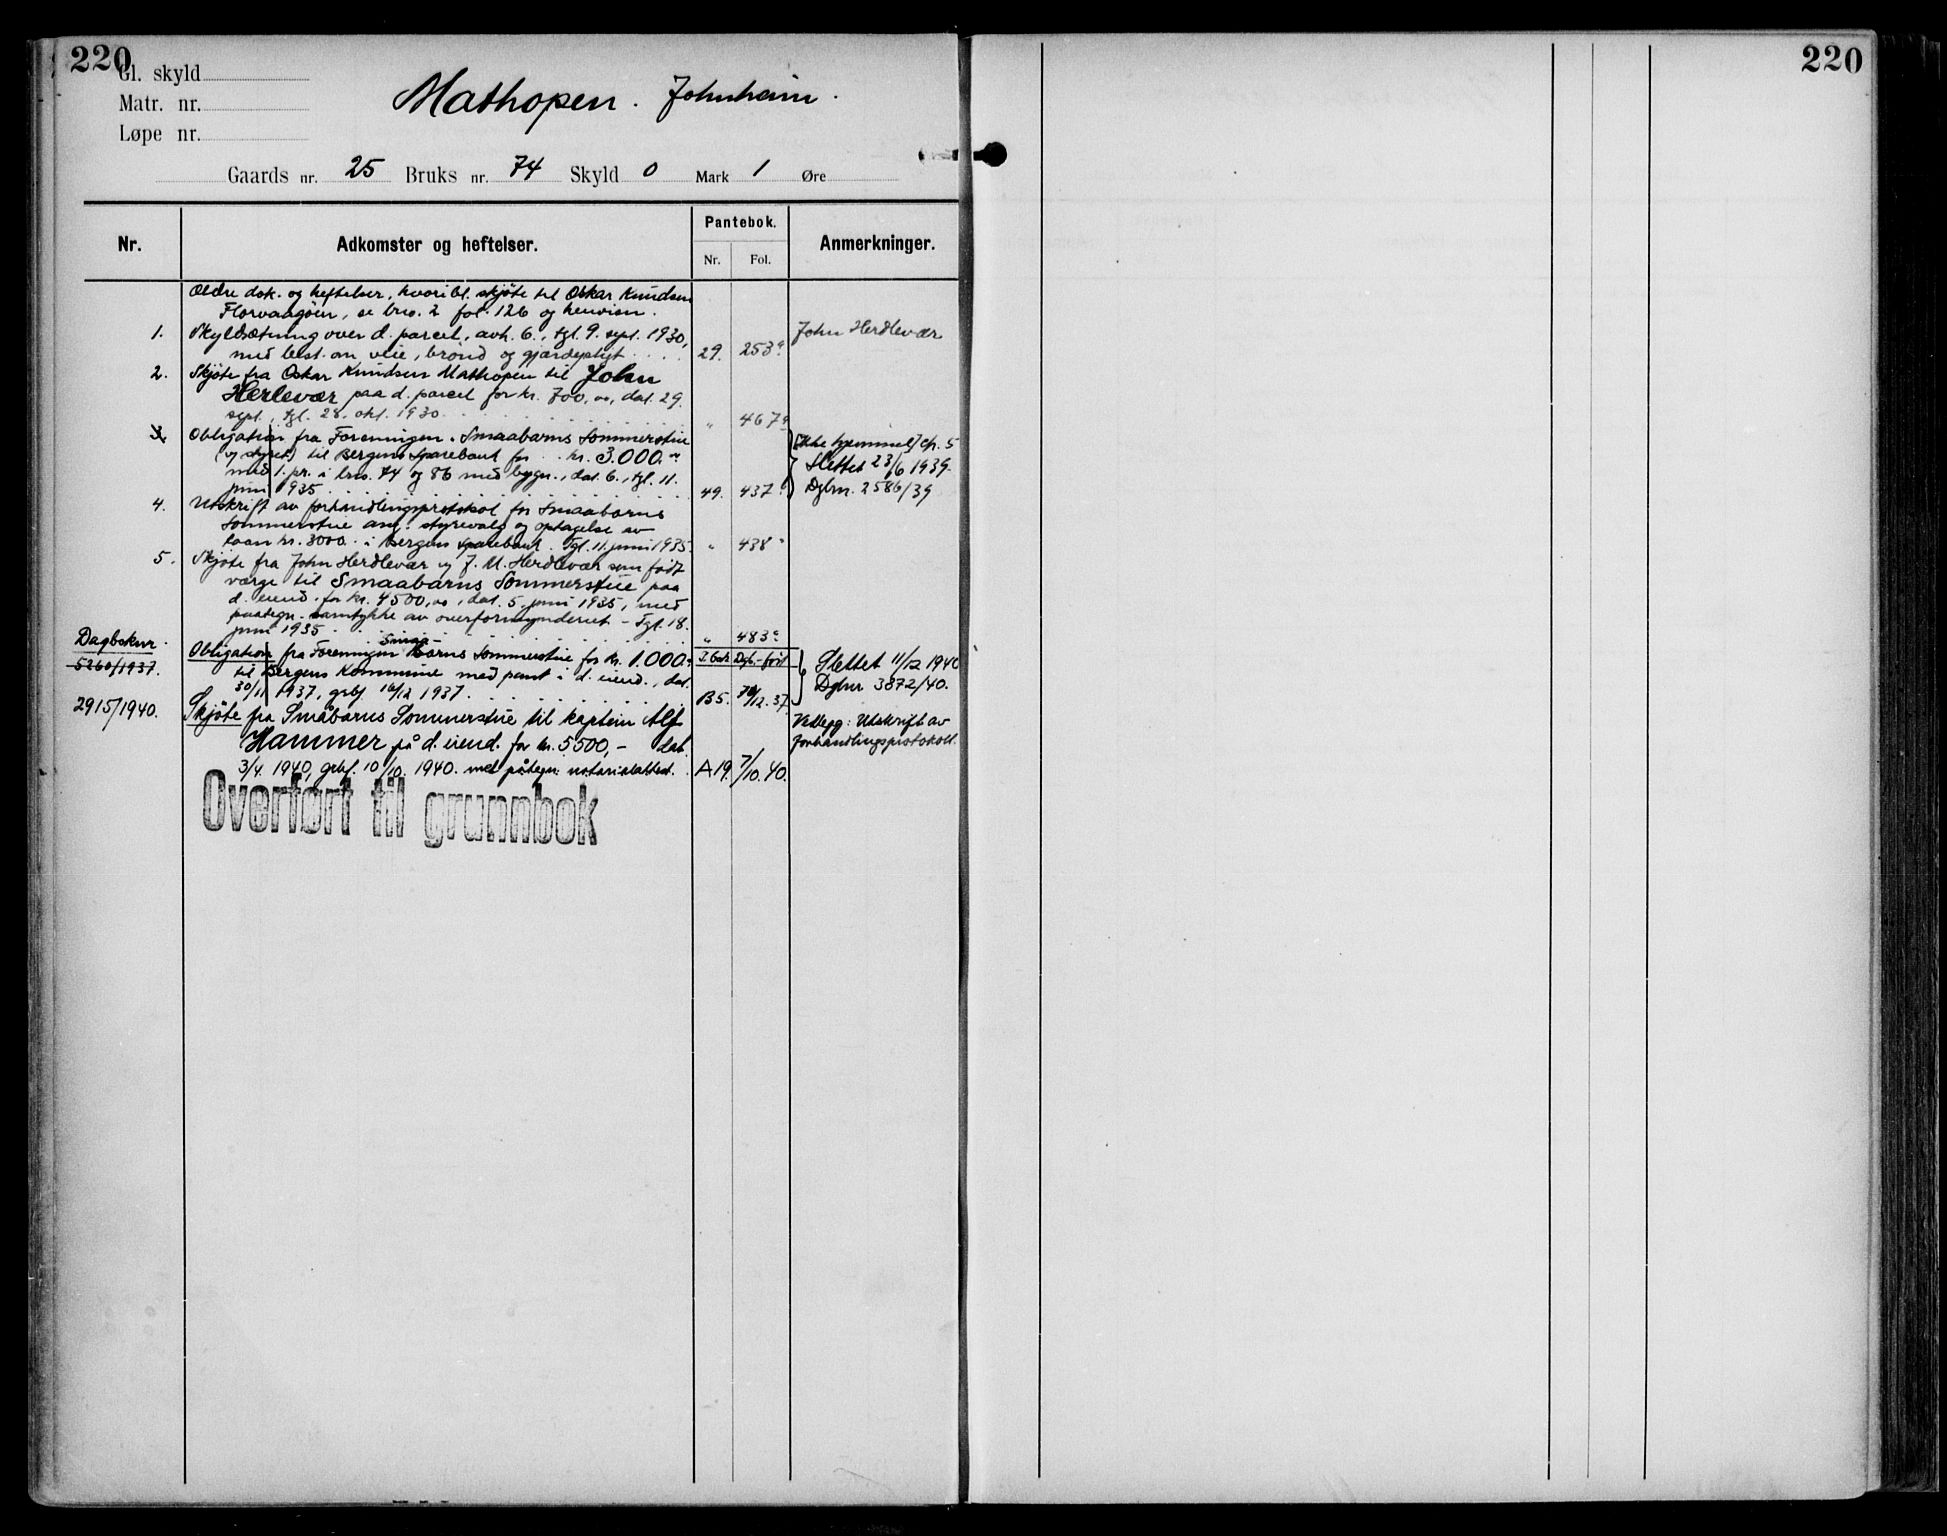 220
220
Gl. skyld
Matr. nr.
Løpe nr.
Mathopen. Johnheim.
Gaards nr. 25 Bruks nr. 74 Skyld 0 Mark 1 Øre
Nr.
Adkomster og heftelser.
Pantebok.
Nr. Fol.
Anmerkninger.
Ældre dok. og heftelser, hvoribl. skjøte til Oskar Knudsen
Florvaagøen, se brno. 2 fol. 126 og henvisn.
1. Skyldsætning over d. parcel, avh. 6., tgl. 9. sept. 1930,
med best. om veie, brønd og gjærdepligt 29. 253a
John Herdlevær
2. Skjøte fra Oskar Knudsen Mathopen til John
Herlevær paa d. parcel for kr. 700,00, dat. 29.
sept., tgl. 28. okt. 1930. " 467a
3. Obligation fra Foreningen Smaabarns Sommerstue
(v/ styret) til Bergens Sparebank for kr. 3.000.00
med 1. pr. i brno. 74 og 86 med bygn., dat. 6., tgl. 11.
juni 1935 49. 437a
[Ikke hjemmel] cfr. 5
Slettet 23/6 1939.
Dgbnr. 2586/39
4. Utskrift av forhandlingsprotokol for Smaabarns
Sommerstue ang. styrevalg og optagelse av
laan kr. 3000.- i Bergens Sparebank. Tgl. 11. juni 1935. " 438
5. Skjøte fra John Herdlevær og J. M. Herdlevær som født
værge til Smaabarns Sommerstue paa
d. eiend. for kr. 4500,00, dat. 5. juni 1935, med
paategn. samtykke av overformynderiet - Tgl. 18.
juni 1935 " 483a
Dagboknr.
5260/1937.
Smaa-
Obligation fra Foreningen Barns Sommerstue for kr. 1.000.-
til Bergens Kommune med pant i d. eiend., dat.
30/11 1937, grbf 16/12 1937. B5. 12. 37.
Dgb.-ført
Slettet 11/12 1940
Dgbnr 3872/40.
2915/1940. Skjøte fra Småbarns Sommerstue til kaptein Alf
Hammer på d. eiend. for kr. 5500,- dat.
3/4. 1940, grbf. 10/10. 1940. med påtegn. notarialattest. A 19. 7/10. 40.
Vedlegg: Utskrift av
forhandlingsprotokoll.
Overført til grunnbok